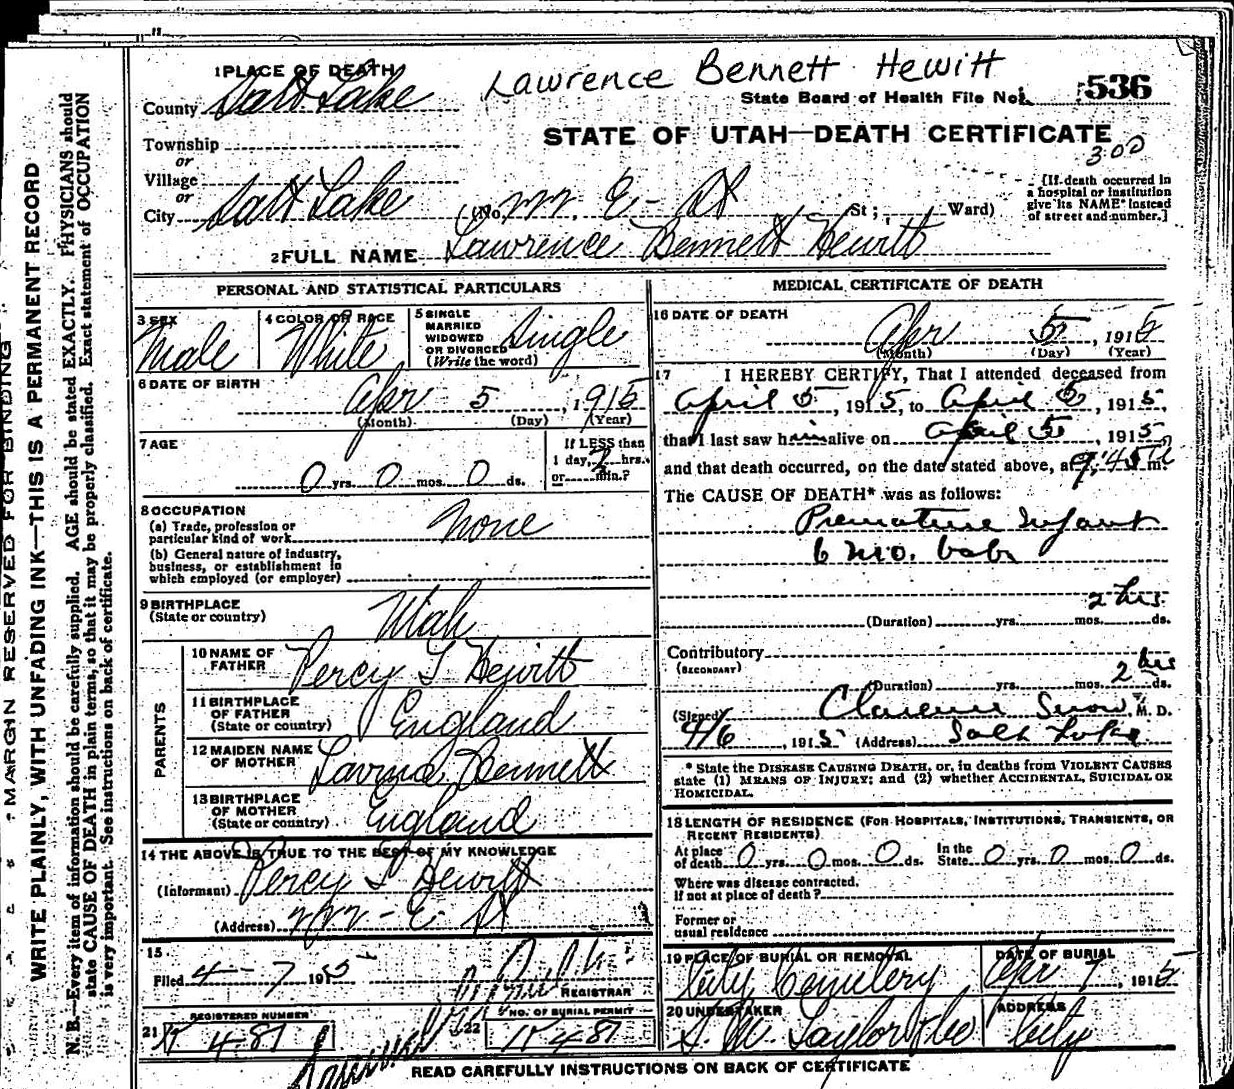 Lawrence Bennett Hewitt
1 PLACE OF DEATH
County Salt Lake
State Board of Health File No. 536
STATE OF UTAH—DEATH CERTIFICATE
3.00
Township
or
Village
or
City Salt Lake (No. E- St St; Ward)
[If death occurred in a hospital or institution give its NAME instead of street and number.]
2 FULL NAME Lawrence Bennett Hewitt
PERSONAL AND STATISTICAL PARTICULARS
3 SEX Male
4 COLOR OR RACE White
5 SINGLE MARRIED WIDOWED OR DIVORCED (Write the word) Single
6 DATE OF BIRTH Apr 5, 1915
(Month) (Day) (Year)
7 AGE
0 yrs. 0 mos. 0 ds.
If LESS than 1 day, 2 hrs. or min.?
8 OCCUPATION
(a) Trade, profession or particular kind of work None
(b) General nature of industry, business, or establishment in which employed (or employer)
9 BIRTHPLACE (State or country) Utah
PARENTS
10 NAME OF FATHER Percy T Hewitt
11 BIRTHPLACE OF FATHER (State or country) England
12 MAIDEN NAME OF MOTHER Lavina Bennett
13 BIRTHPLACE OF MOTHER (State or country) England
14 THE ABOVE IS TRUE TO THE BEST OF MY KNOWLEDGE
(Informant) Percy T Hewitt
(Address) - E- St
15
Filed 4-7 1915
REGISTRAR
REGISTERED NUMBER
21 K 487
22 NO. OF BURIAL PERMIT
K 487
MEDICAL CERTIFICATE OF DEATH
16 DATE OF DEATH
Apr 5, 1915
(Month) (Day) (Year)
17 I HEREBY CERTIFY, That I attended deceased from
April 5, 1915, to April 5, 1915,
that I last saw him alive on April 5, 1915,
and that death occurred, on the date stated above, at 9:45 m
The CAUSE OF DEATH* was as follows:
Premature Infant
6 mo. baby
2 hrs.
(Duration) yrs. mos. ds.
Contributory
(SECONDARY)
2 hrs
(Duration) yrs. mos. ds.
(Signed) Clarence Snow, M. D.
4/6, 1915 (Address) Salt Lake
* State the DISEASE CAUSING DEATH, or, in deaths from VIOLENT CAUSES
state (1) MEANS OF INJURY; and (2) whether ACCIDENTAL, SUICIDAL OR
HOMICIDAL.
18 LENGTH OF RESIDENCE (FOR HOSPITALS, INSTITUTIONS, TRANSIENTS, OR
RECENT RESIDENTS)
At place of death 0 yrs. 0 mos. 0 ds. In the State 0 yrs. 0 mos. 0 ds.
Where was disease contracted,
If not at place of death?
Former or
usual residence
19 PLACE OF BURIAL OR REMOVAL City Cemetery
DATE OF BURIAL Apr 7, 1915
20 UNDERTAKER S. M. Taylor & Co
ADDRESS City
READ CAREFULLY INSTRUCTIONS ON BACK OF CERTIFICATE
MARGIN RESERVED FOR BINDING
WRITE PLAINLY, WITH UNFADING INK—THIS IS A PERMANENT RECORD
N. B.—Every item of information should be carefully supplied. AGE should be stated EXACTLY. PHYSICIANS should
state CAUSE OF DEATH in plain terms, so that it may be properly classified. Exact statement of OCCUPATION
is very important. See instructions on back of certificate.